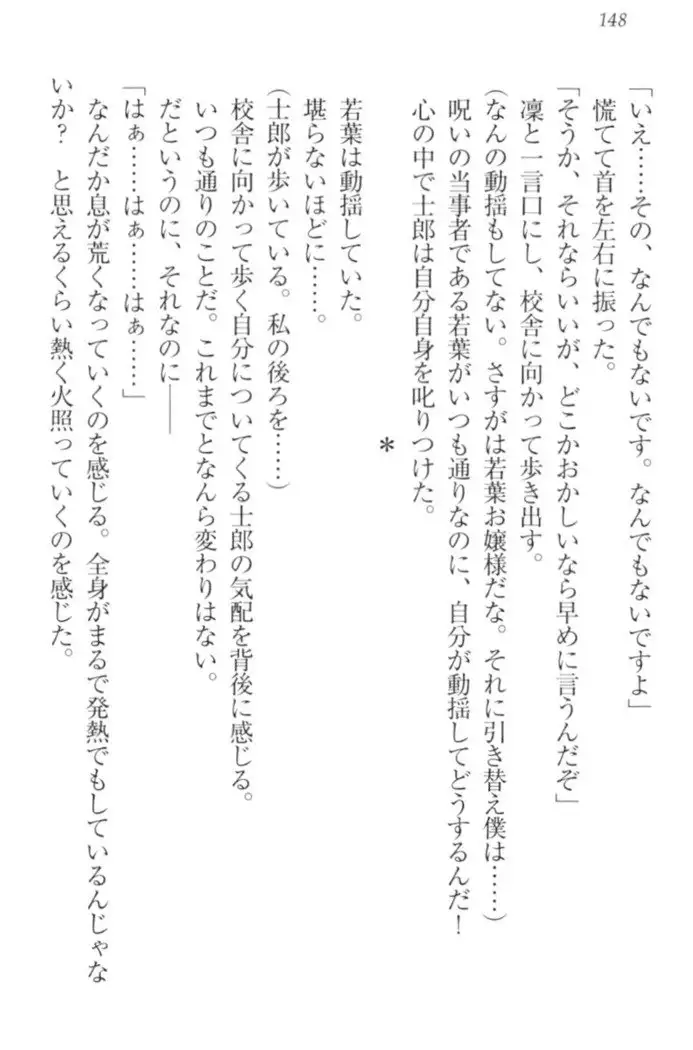 148
「いえ……その、なんでもないです。なんでもないですよ」
慌てて首を左右に振った。
「そうか、それならいいが、どこかおかしいなら早めに言うんだぞ」
凜と一言口にし、校舎に向かって歩き出す。
（なんの動揺もしてない。さすがは若葉お嬢様だな。それに引き替え僕は……）
呪いの当事者である若葉がいつも通りなのに、自分が動揺してどうするんだ！
心の中で士郎は自分自身を叱りつけた。
＊
若葉は動揺していた。
堪らないほどに……。
（士郎が歩いている。私の後ろを……）
校舎に向かって歩く自分についてくる士郎の気配を背後に感じる。
いつも通りのことだ。これまでとなんら変わりはない。
だというのに、それなのに――
「はぁ……はぁ……はぁ……」
なんだか息が荒くなっていくのを感じる。全身がまるで発熱でもしているんじゃな
いか？　と思えるくらい熱く火照っていくのを感じた。